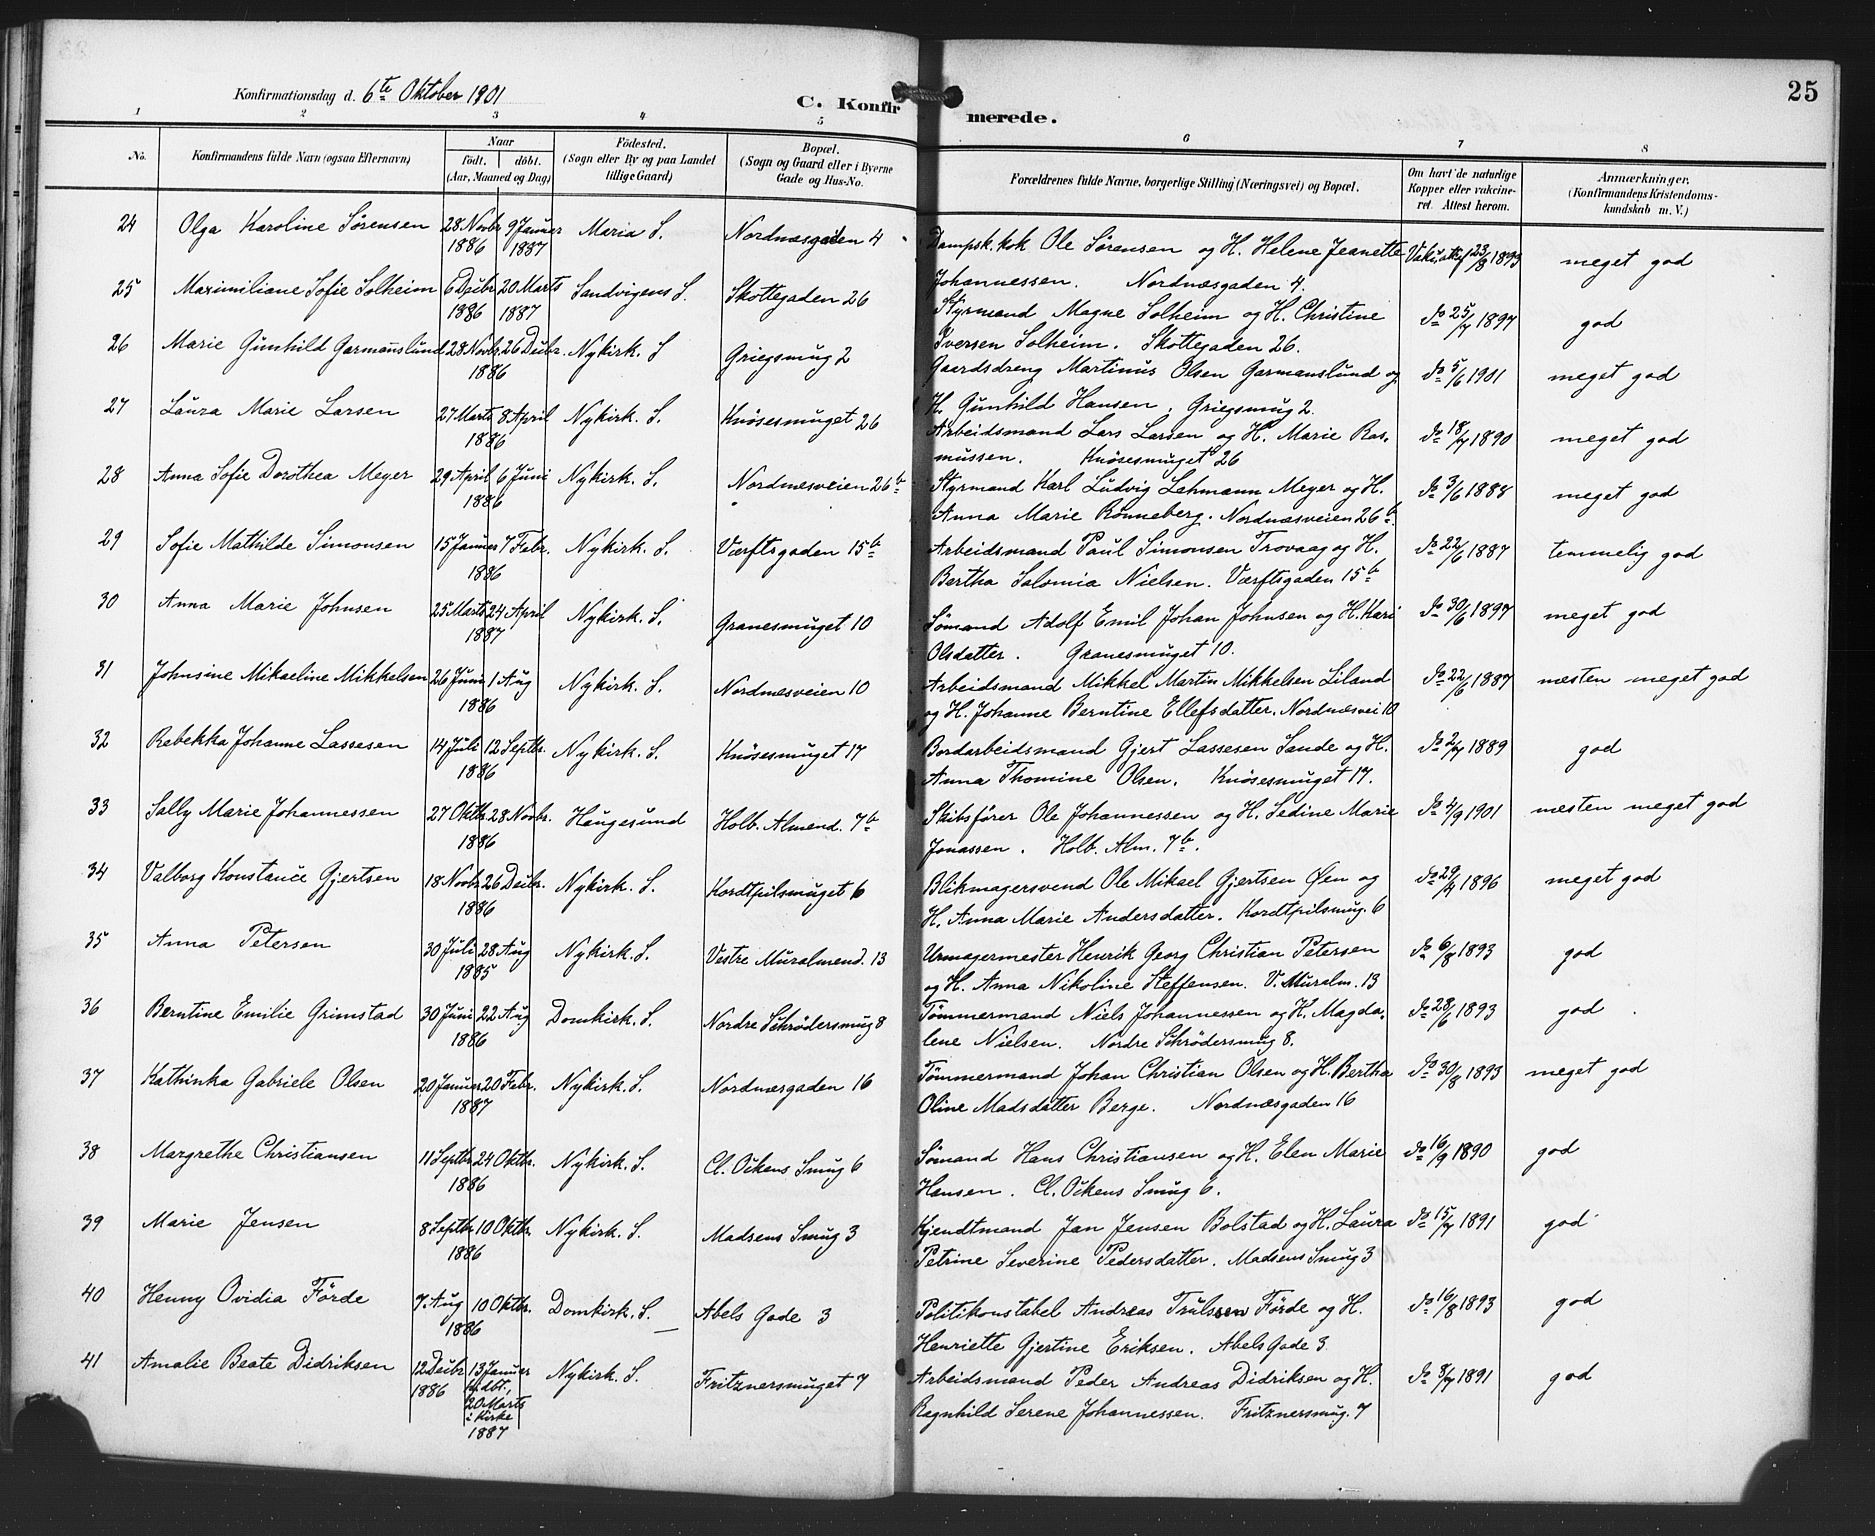 25
Konfirmationsdag d. 6te Oktober 1901
C. Konfirmerede.
1 2 3 4 5 6 7 8
No. Konfirmandens fulde Navn (ogsaa Efternavn) Naar födt. döbt. (Aar, Maaned og Dag) Födested. (Sogn eller By og paa Landet tillige Gaard) Bopæl. (Sogn og Gaard eller i Byerne Gade og Hus-No. Forældrenes fulde Navne, borgerlige Stilling (Næringsvei) og Bopæl. Om havt de naturlige Kopper eller vakcineret. Attest herom. Anmærkninger. (Konfirmandens Kristendomskundskab m. V.)
24 Olga Karoline Sörensen 28 Novbr 1886 9 Januar 1887 Maria S. Nordnæsgaden 4 Dampsk.kok Ole Sörensen og H. Helene Jeanette 23/8 1893 meget god
Johannessen. Nordnæsgaden 4.
25 Maximiliane Sofie Solheim 6 Dcbr 1886 20 Marts 1887 Sandvigens S. Skottegaden 26 Styrmand Magne Solheim og H. Christine Do 25/7 1897 god
Iversen Solheim. Skottegaden 26.
26 Marie Gunhild Garmanslund 28 Novbr. 26 Dcbr. 1886 Nykirk. S Griegsmug 2 Gaardsdreng Martinus Olsen Garmanslund og Do 5/6 1901 meget god
H. Gunhild Hansen. Griegsmug 2.
27 Laura Marie Larsen 27 Marts 8 April 1886 Nykirk. S. Knösesmuget 26 Arbeidsmand Lars Larsen og H. Marie Ras- Do 18/7 1890 meget god
mussen. Knösesmuget 26
28 Anna Sofie Dorothea Meyer 29 April 6 Juni 1886 Nykirk. S. Nordnæsveien 26b Styrmand Karl Ludvig Lehmann Meyer og H. Do 3/6 1888 meget god
Anna Marie Rönneberg. Nordnæsveien 26b.
29 Sofie Mathilde Simonsen 15 Januar 7 Febr. 1886 Nykirk. S. Værftsgaden 15b Arbeidsmand Paul Simonsen Trovaag og H. Do 22/6 1887 temmelig god
Bertha Salomia Nielsen. Værftsgaden 15b
30 Anna Marie Johnsen 25 Marts 24 April 1887 Nykirk. S. Granesmuget 10 Sömand Adolf Emil Johan Johnsen og H. Kari Do 30/6 1897 meget god
Olsdatter. Granesmuget 10.
31 Johnsine Mikaeline Mikkelsen 26 Juni 1 Aug 1886 Nykirk. S. Nordnæsveien 10 Arbeidsmand Mikkel Martin Mikkelsen Liland Do 22/6 1887 næsten meget god
og H. Johanne Berntine Ellefsdatter. Nordnæsvei 10
32 Rebekka Johanne Lassesen 14 Juli 12 Septbr. 1886 Nykirk. S. Knösesmuget 17 Bordarbeidsmand Gjert Lassesen Sande og H. Do 2/7 1889 god
Anna Thomine Olsen. Knösesmuget 17.
33 Sally Marie Johannessen 27 Oktbr. 28 Novbr. 1886 Haugesund Holb. Almend. 7b Skibsförer Ole Johannessen og H. Sedine Marie Do 4/9 1901 næsten meget god
Jonassen. Holb. Alm. 7b.
34 Valborg Konstance Gjertsen 18 Novbr 26 Dcbr. 1886 Nykirk. S. Kordtpilsmuget 6 Blikmagersvend Ole Mikael Gjertsen Øen og Do 29/4 1896 meget god
H. Anna Marie Andersdatter. Kordtpilsmug. 6
35 Anna Petersen 30 Juli 28 Aug 1885 Nykirk. S. Vestre Muralmend. 13 Urmagermester Henrik Georg Christian Petersen Do 6/8 1893 god
og H. Anna Nikoline Steffensen. V. Muralm. 13
36 Berntine Emilie Grimstad 30 Juni 22 Aug 1886 Domkirk. S. Nordre Schrödersmug 8 Tömmermand Niels Johannessen og H. Magda- Do 28/6 1893 god
lene Nielsen. Nordre Schrödersmug 8.
37 Kathinka Gabriele Olsen 20 Januar 20 Febr. 1887 Nykirk. S. Nordnæsgaden 16 Tömmermand Johan Christian Olsen og H. Bertha Do 30/8 1893 meget god
Oline Madsdatter Berge. Nordnæsgaden 16
38 Margrethe Christiansen 11 Septbr 24 Oktbr. 1886 Nykirk. S. Cl. Ockens Smug 6 Sömand Hans Christiansen og H. Elen Marie Do 16/9 1890 god
Hansen. Cl. Ockens Smug 6.
39 Marie Jensen 8 Septbr 10 Oktbr. 1886 Nykirk. S. Madsens Smug 3 Kjendtmand Jan Jensen Bolstad og H. Laura Do 15/7 1891 god
Petrine Severine Pedersdatter. Madsens Smug 3
40 Henny Ovidia Förde 7 Aug 10 Oktbr. 1886 Domkirk. S. Abels Gade 3 Politikonstabel Andreas Trulssen Förde og H. Do 16/8 1893 god
Henriette Gjertine Eriksen. Abels Gade 3
41 Amalie Beate Didriksen 12 Dcbr 1886 13 Januar hj.dbt., 20 Marts i Kirke 1887 Nykirk. S. Fritznersmuget 7 Arbeidsmand Peder Andreas Didriksen og H. Do 8/7 1891 god
Ragnhild Serene Johannessen. Fritznersmug. 7